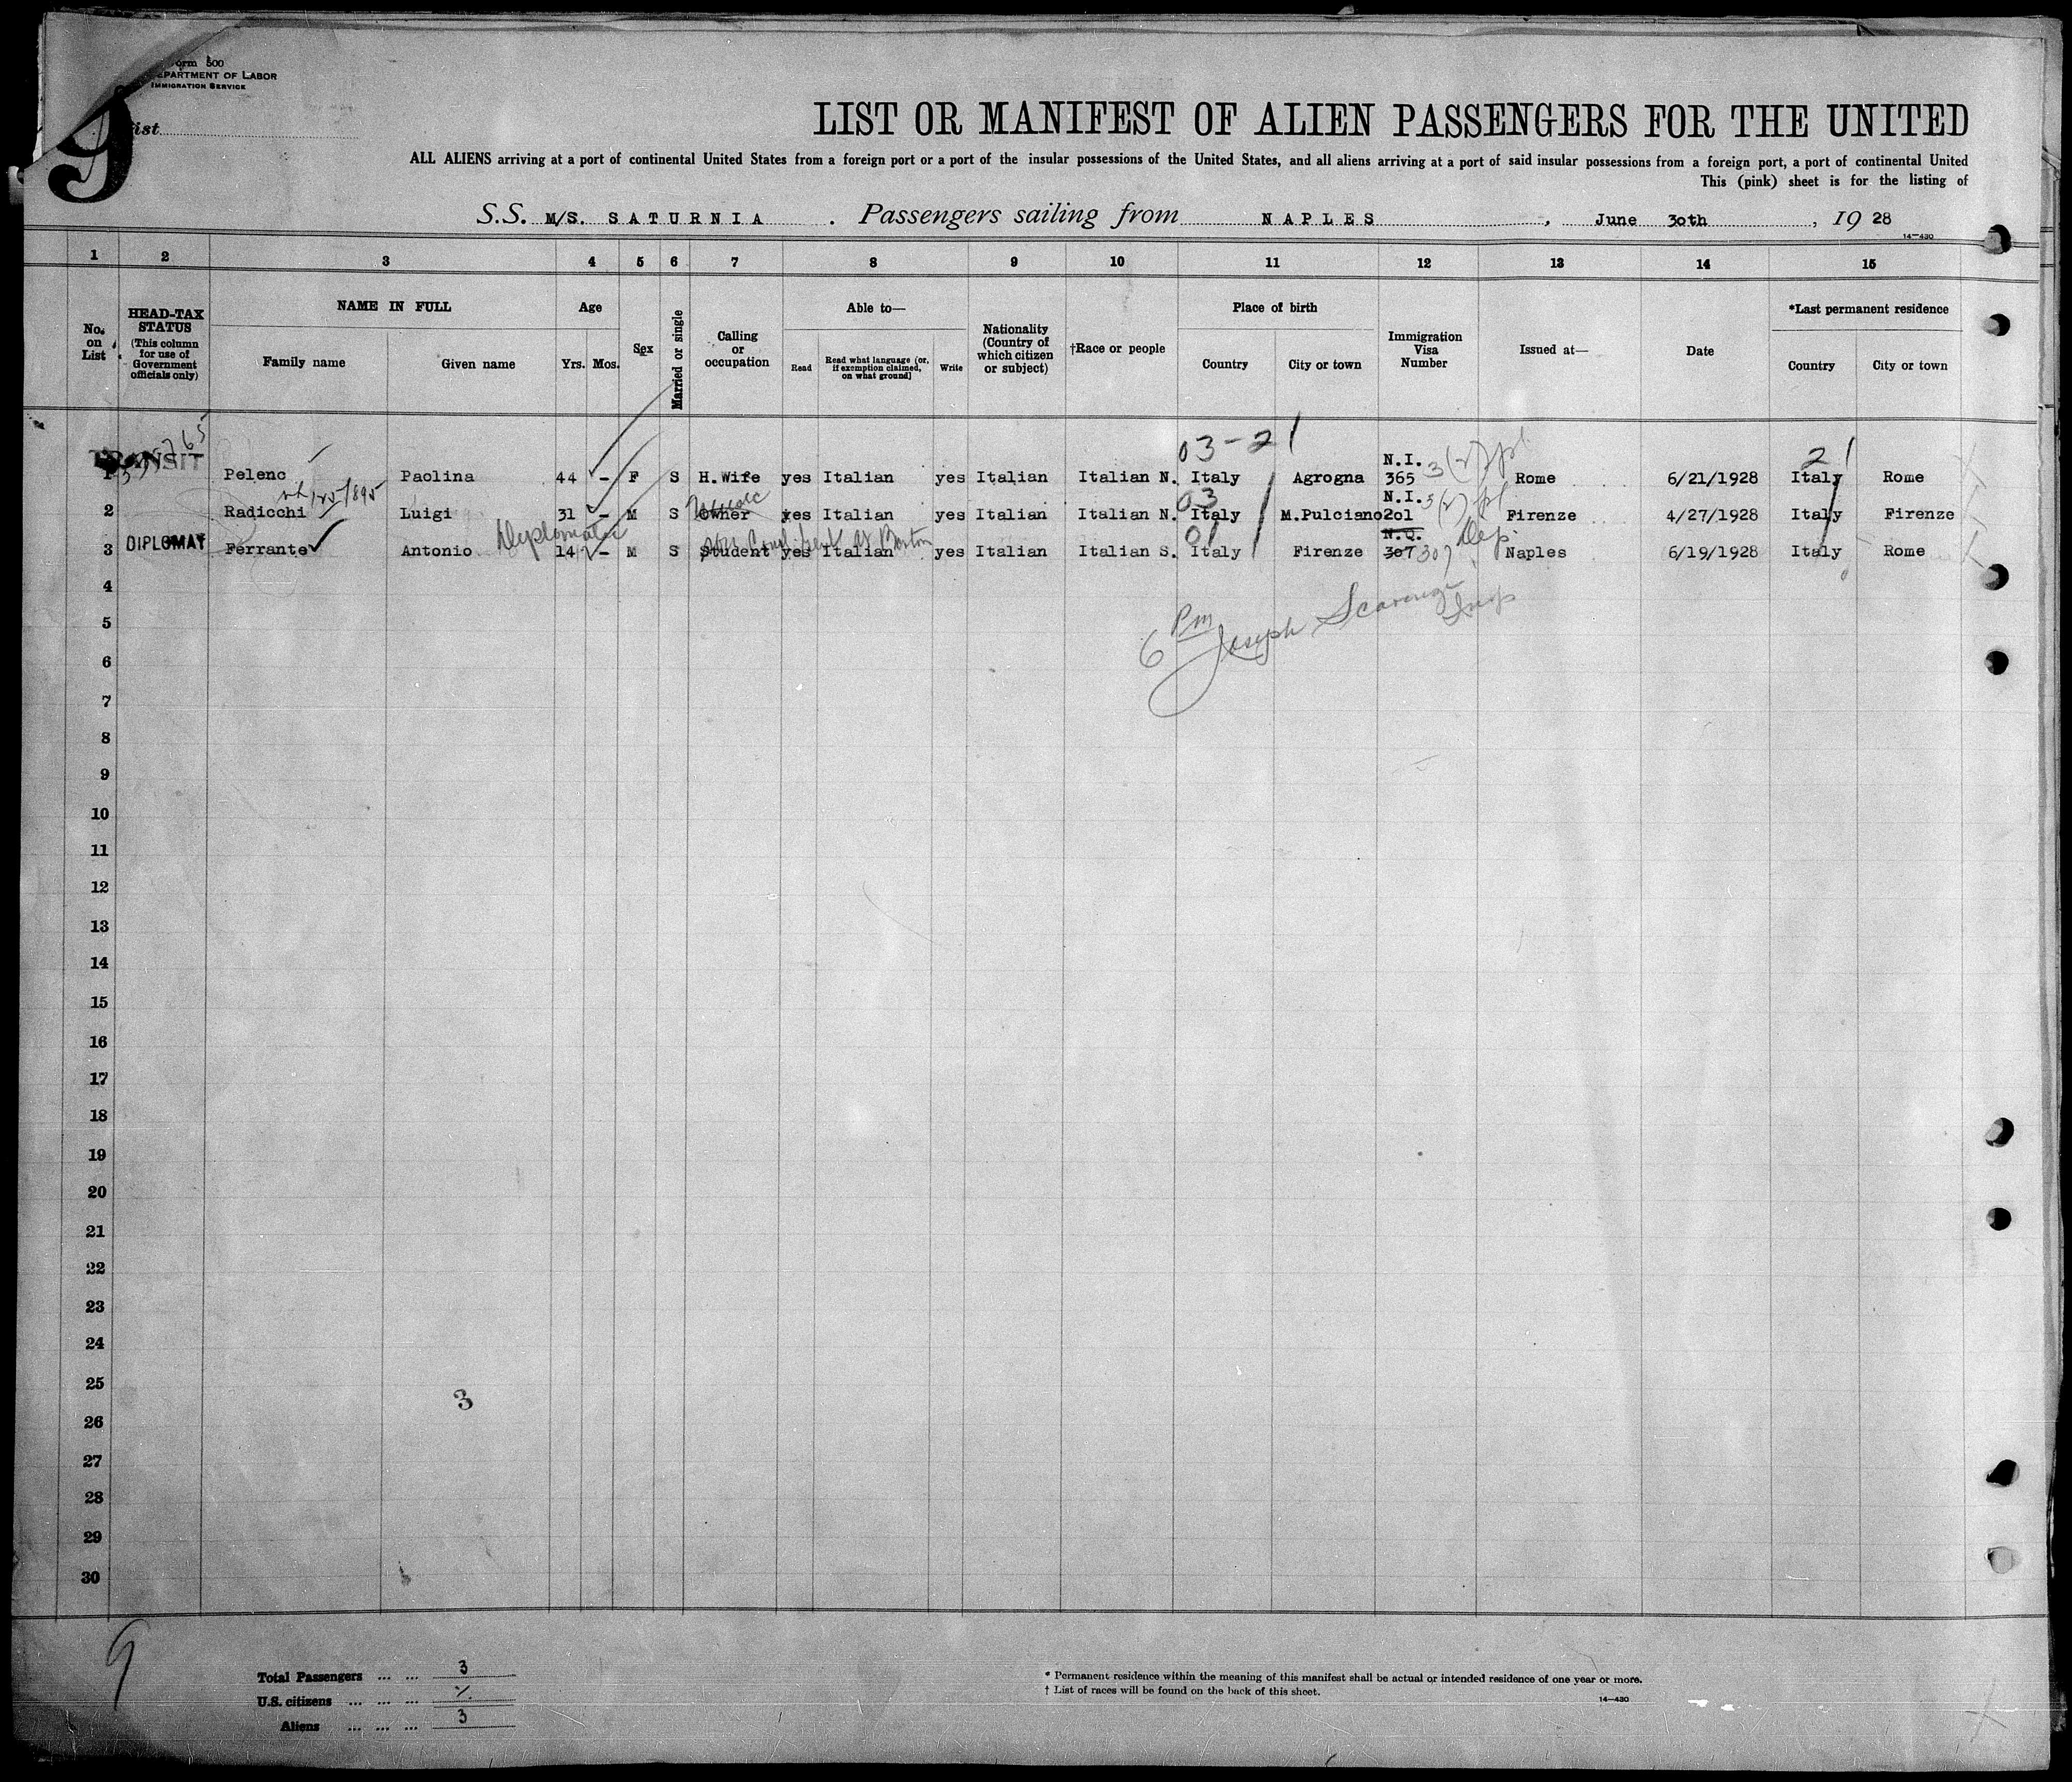 orm 500
EPARTMENT OF LABOR
IMMIGRATION SERVICE
9
ist
LIST OR MANIFEST OF ALIEN PASSENGERS FOR THE UNITED
ALL ALIENS arriving at a port of continental United States from a foreign port or a port of the insular possessions of the United States, and all aliens arriving at a port of said insular possessions from a foreign port, a port of continental United
This (pink) sheet is for the listing of
S.S. M/S. SATURNIA. Passengers sailing from NAPLES, June 30th, 19 28
14—430
1 2 3 4 5 6 7 8 9 10 11 12 13 14 15
No. on List
HEAD-TAX STATUS (This column for use of Government officials only)
NAME IN FULL
Family name Given name
Age
Yrs. Mos.
Sex
Married or single
Calling or occupation
Able to—
Read Read what language [or, if exemption claimed, on what ground] Write
Nationality (Country of which citizen or subject)
†Race or people
Place of birth
Country City or town
Immigration Visa Number
Issued at—
Date
*Last permanent residence
Country City or town
03-21
TRANSIT
N.I.
21
1 Pelenc Paolina 44 - F S H.Wife yes Italian yes Italian Italian N. Italy Agrogna 365 3(2) Rome 6/21/1928 Italy Rome
03
N.I. 3(2)
2 Radicchi Luigi 31 - M S Owner yes Italian yes Italian Italian N. Italy M.Pulciano 201 Firenze 4/27/1928 Italy Firenze
Diplomatic
at Boston
01
N.Q. Dip.
3 DIPLOMAT Ferrante Antonio 14 - M S Student yes Italian yes Italian Italian S. Italy Firenze 307 307 Naples 6/19/1928 Italy Rome
4
5
6 Pm Joseph Insp
6
7
8
9
10
11
12
13
14
15
16
17
18
19
20
21
22
23
24
25
3
26
27
28
29
30
9
Total Passengers ... ... 3
U.S. citizens ... ... ...
Aliens ... ... ... 3
* Permanent residence within the meaning of this manifest shall be actual or intended residence of one year or more.
† List of races will be found on the back of this sheet.
14—430